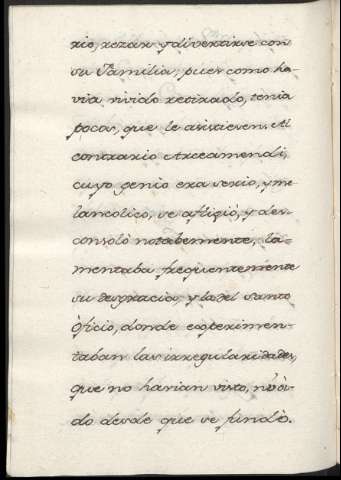 rio, rezar y divertirse con
su Familia, pues como ha-
via vivido retirado, tenia
pocos, que le asistiesen. Al
contrario Arceamendi,
cuyo genio era serio, y me-
lancolico, se afligiò, y des-
consolò notabemente, la-
mentaba frequentemente
su desgracia, y la del Santo
Oficio, donde experimen-
taban las irregularidades,
que no havian visto, ni oì-
do desde que se fundò.